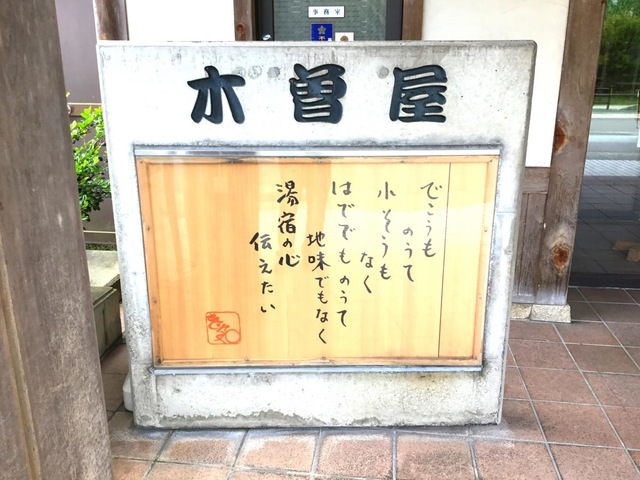 事務室
木曽屋
でこうも
のうて
小そうも
なく
はででものうて
地味でもなく
湯宿の心
伝えたい